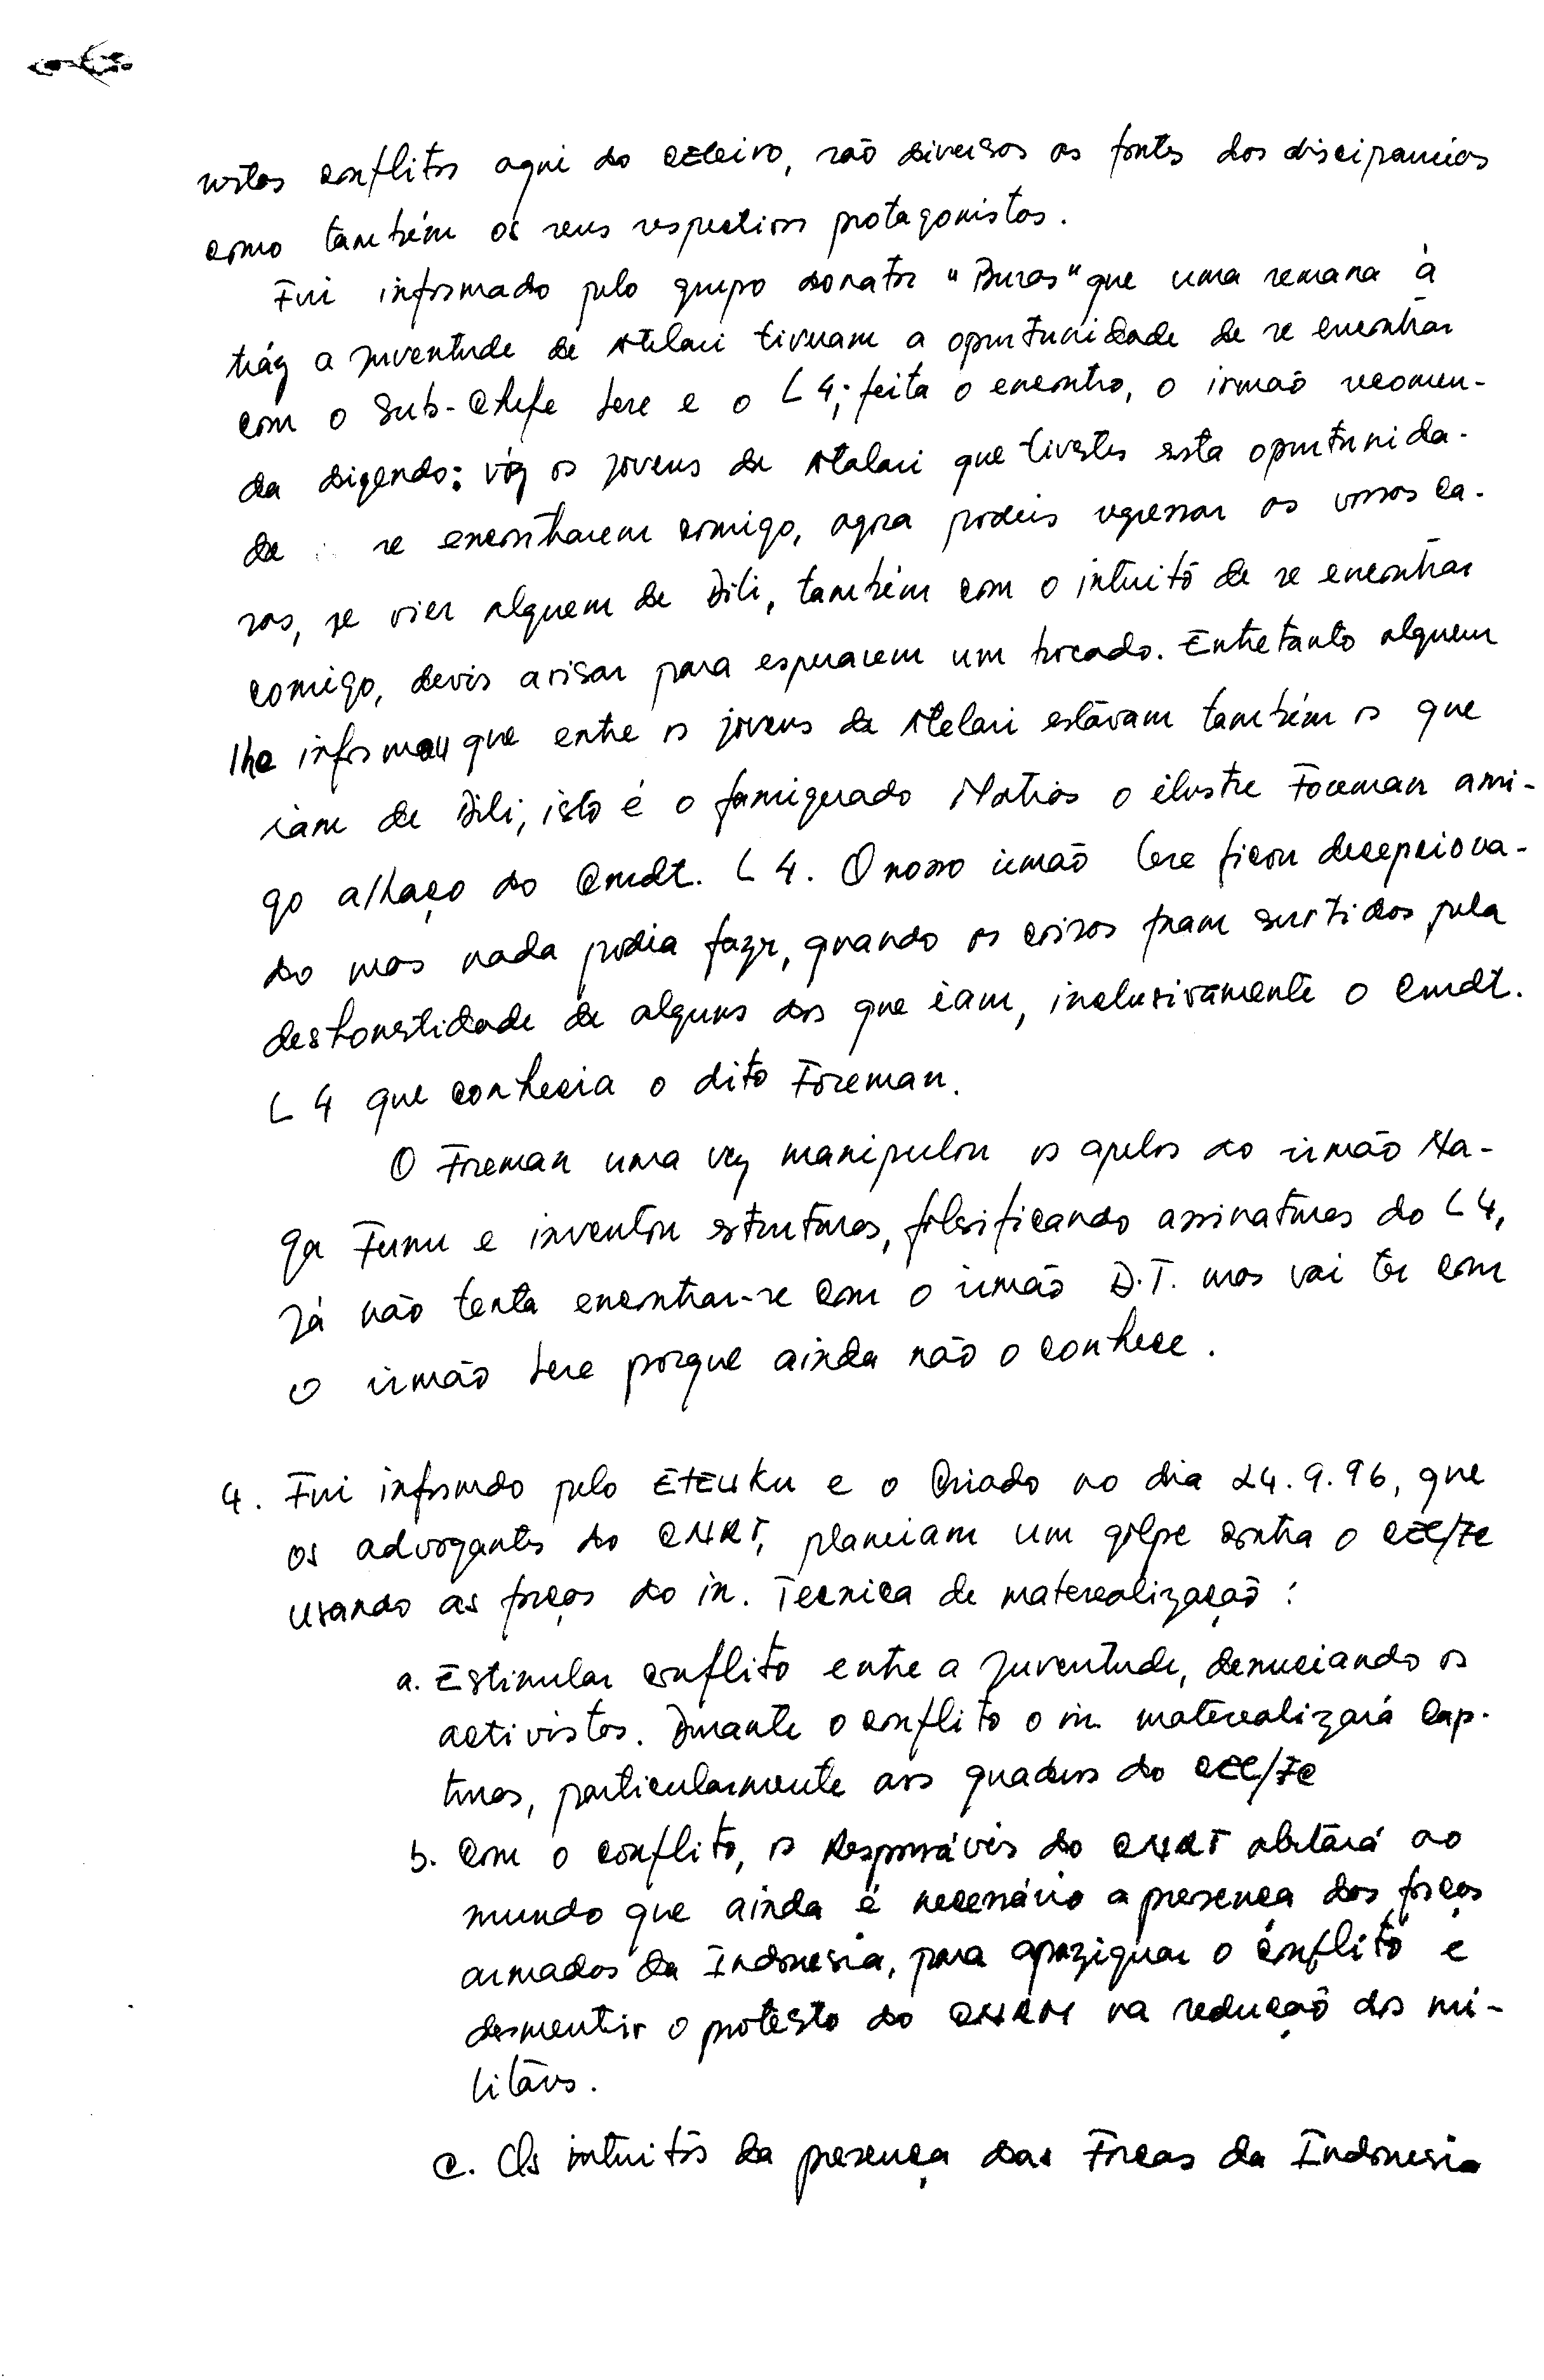 nestes conflitos aqui do CELeiro, são diversas as fontes das discripancias
como também os seus respectivos protagonistas.
Fui informado pelo grupo sonator "Buras" que uma semana à
tráz a juventude de Atelari tiveram a oportunidade de se encontrar
com o Sub-Chefe Lere e o L4; feita o encontro, o irmão recomen-
da dizendo: vóz os jovens de Atalari que tivestes esta oportunida-
de se encontrarem comigo, agora podeis regressar as vossas ca-
sas, se vier alguem de Dili, também com o intuitõ de se encontrar
comigo, deveis avisar para esperarem um bocado. Entretanto alguem
lhe informou que entre os jovens de Atelari estavam também os que
iam de Dili, isto é o famigerado Matias o ilustre Foreman ami-
go alhaço do Cmdt. L4. O nosso irmão Lere ficou decepciona-
do mas nada podia fazer, quando as coisas foram surtidas pela
deshonestidade de alguns dos que iam, inclusivamente o Cmdt.
L4 que conhecia o dito Foreman.
O Foreman uma vez manipulou os apelos do irmão Ma-
ga Funu e inventou estruturas, falsificando assinaturas do L4,
Já não tenta encontrar-se com o irmão D.T. mas vai ter com
o irmão Lere porque ainda não o conhece.
4. Fui informdo pelo ETEUKu e o Criado no dia 24.9.96, que
os advorgantes do CNRT, planeiam um golpe contra o CEL/FC
usando as forças do in. Tecnica de materealização:
a. Estimular conflito entre a Juventude, denuciando os
activistas. Durante o conflito o in. materealizará cap-
turas, particularmente aos quadros do CEL/FC
b. Com o conflito, os Responsáveis do CNRT alertará ao
mundo que ainda é necessário a presença das forças
armadas da Indonesia, para apaziguar o conflito e
desmentir o protesto do CNRM na redução dos mi-
litares.
c. Os intuitos da presença das Forcas da Indonesia